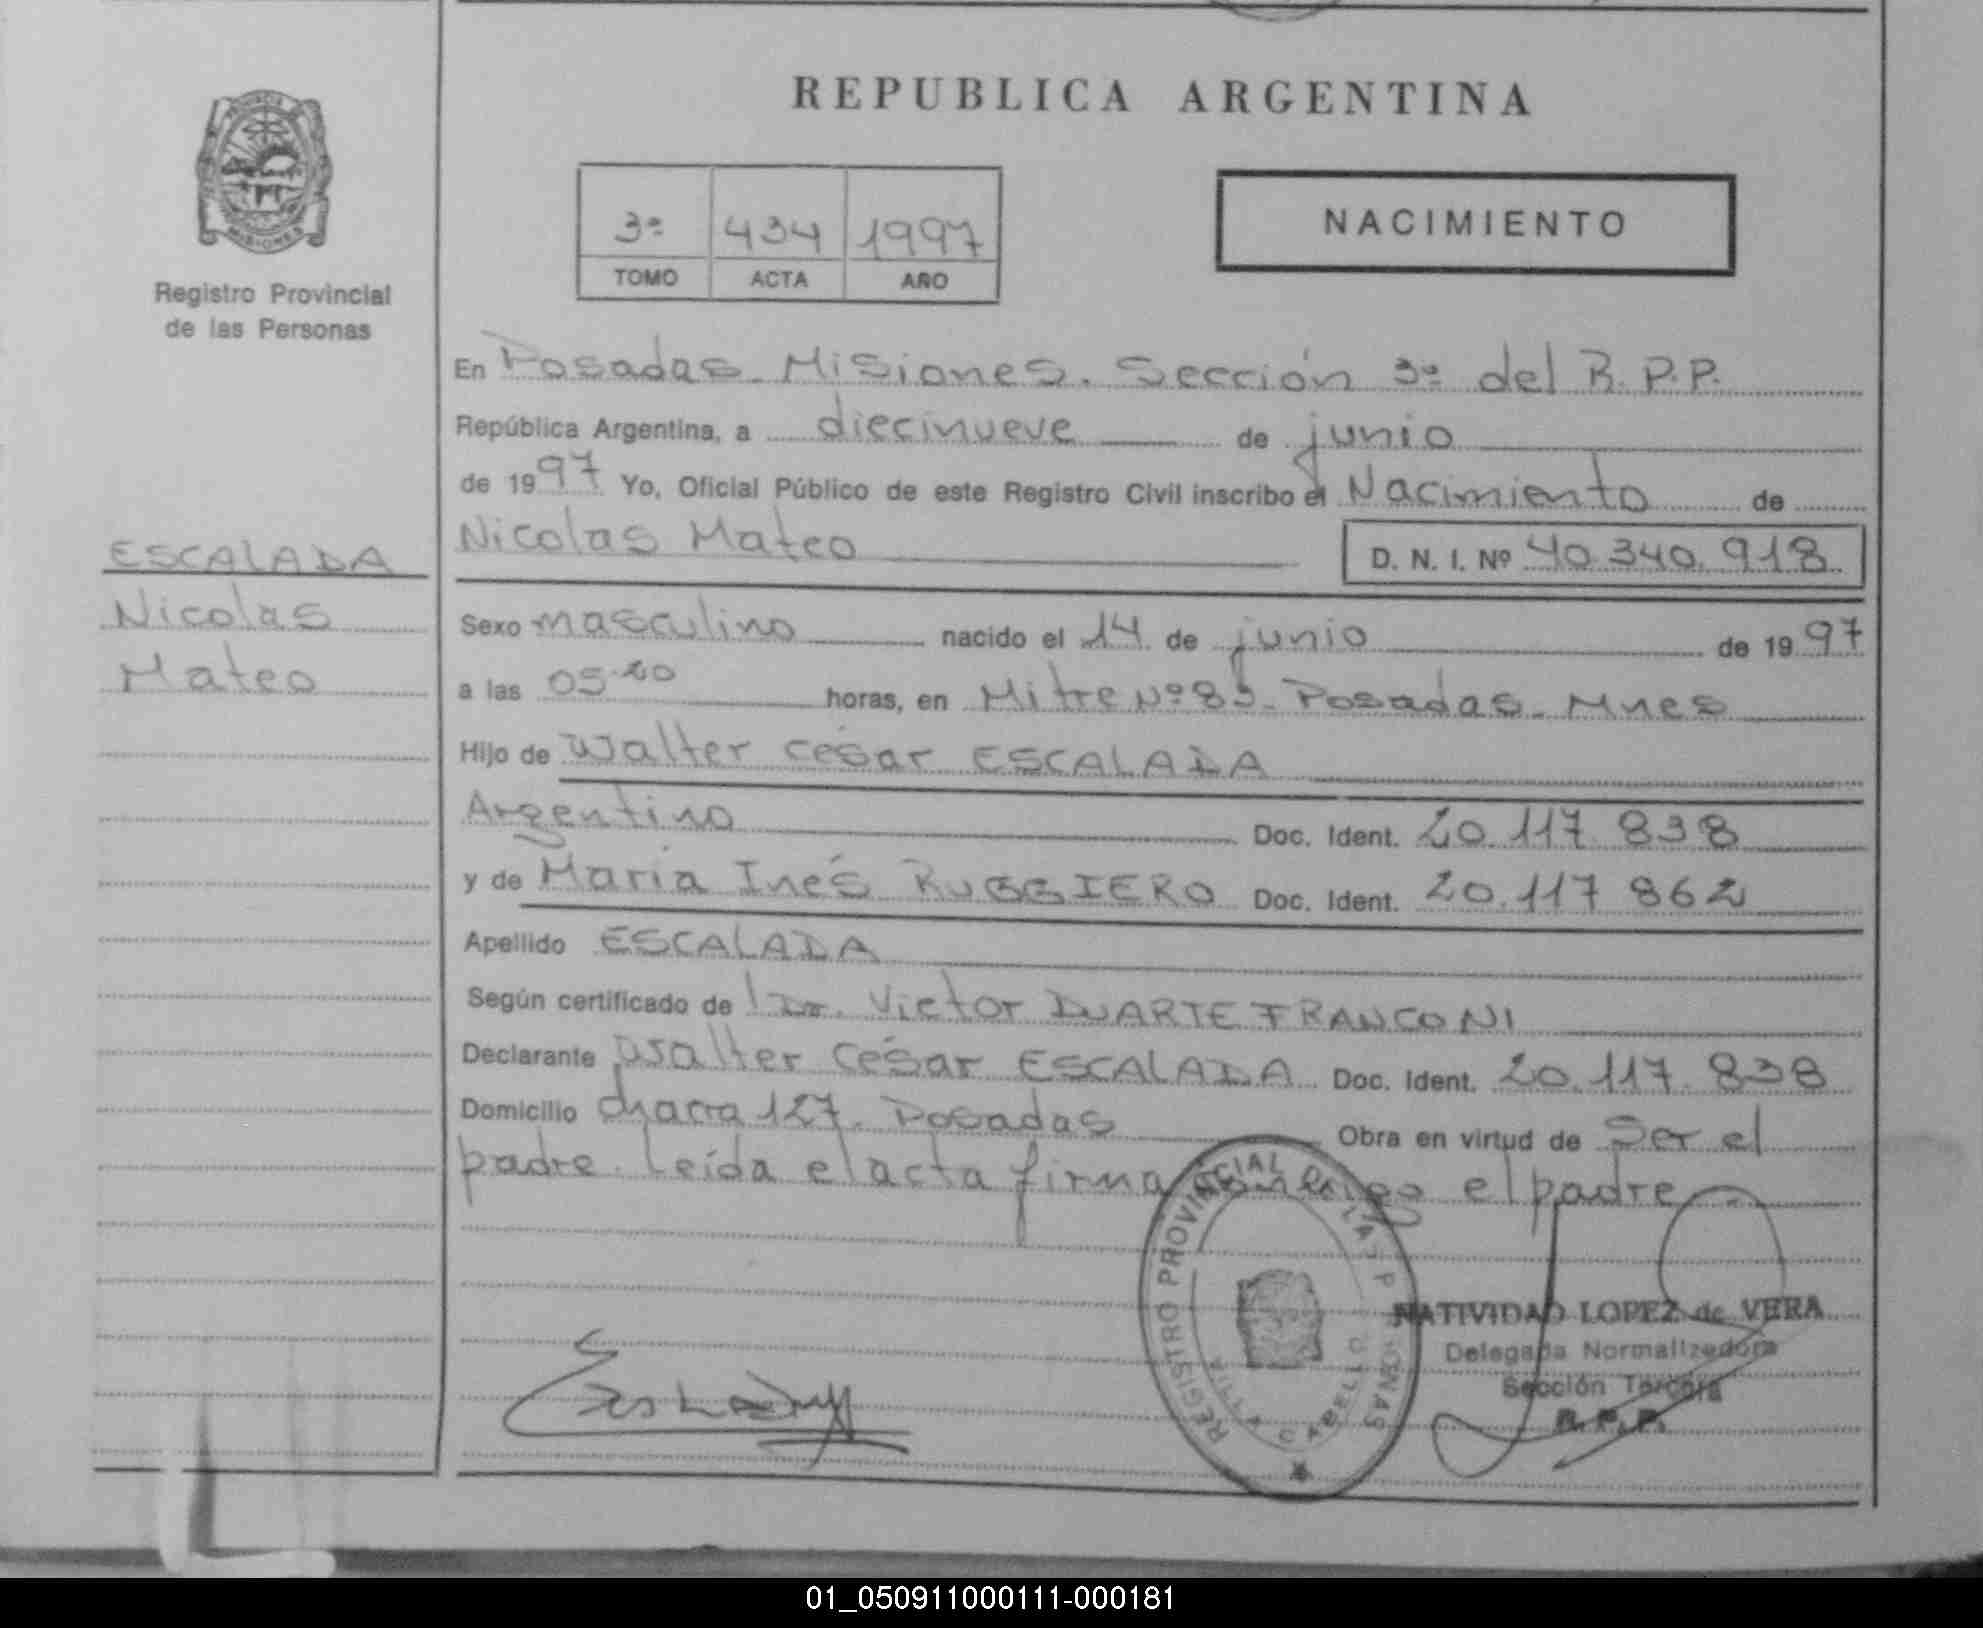 REPUBLICA ARGENTINA
PROVINCIA
MISIONES
Registro Provincial
de las Personas
3ª 434 1997
TOMO ACTA AÑO
NACIMIENTO
En Posadas. Misiones. Sección 3ª del R.P.P.
República Argentina, a diecinueve de junio
de 1997 Yo, Oficial Público de este Registro Civil inscribo el Nacimiento de
Nicolas Mateo D. N. I. Nº 40.340.918
ESCALADA
Nicolas
Mateo
Sexo masculino nacido el 14 de junio de 1997
a las 05.20 horas, en Mitre Nº 83. Posadas. Mnes
Hijo de Walter césar ESCALADA
Argentino Doc. Ident. 20.117.838
y de María Inés RUGGIERO Doc. Ident. 20.117 862
Apellido ESCALADA
Según certificado de Dr. Victor DUARTE FRANCONI
Declarante Walter césar ESCALADA Doc. Ident. 20.117.838
Domicilio chacra 127. Posadas Obra en virtud de Ser el
padre. Leída el acta firma conmigo el padre
REGISTRO PROVINCIAL DE LAS PERSONAS
VILLA CABELLO
NATIVIDAD LOPEZ de VERA
Delegada Normalizadora
Sección Tercera
R.P.P.
01_050911000111-000181